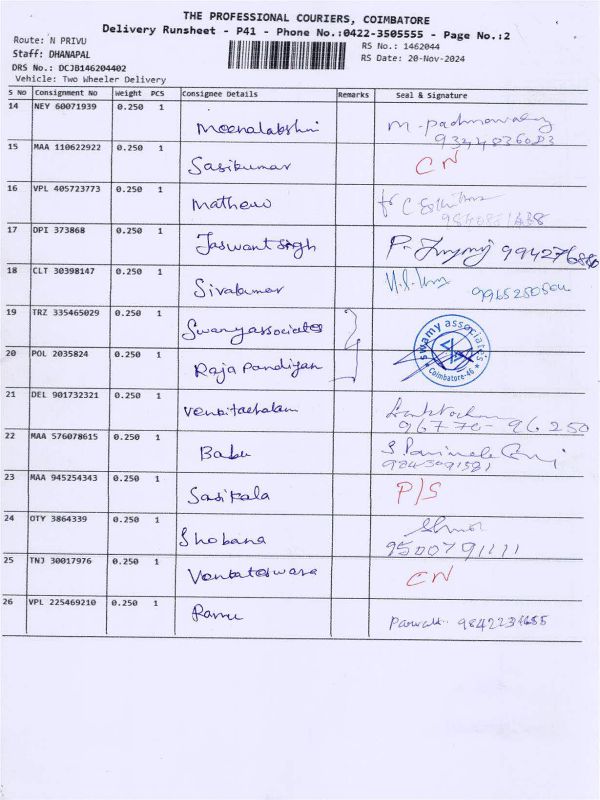 THE PROFESSIONAL COURIERS, COIMBATORE
Delivery Runsheet - P41 - Phone No.:0422-3505555 - Page No.:2
Route: N PRIVU
RS No.: 1462044
Staff: DHANAPAL
RS Date: 20-Nov-2024
DRS No.: DCJB146204402
Vehicle: Two Wheeler Delivery
S No Consignment No Weight PCS Consignee Details Remarks Seal & Signature
14 NEY 60071939 0.250 1 Meenalakshmi M. Padmavathy
15 MAA 110622922 0.250 1 Sasikumar CN
16 VPL 405723773 0.250 1 Mathew for C
17 DPI 373868 0.250 1 Jaswant singh P.
18 CLT 30398147 0.250 1 Sivakumar
19 TRZ 335465029 0.250 1 Swamy associates
swamy associates
Coimbatore-46
20 POL 2035824 0.250 1 Raja Pandiyan
21 DEL 901732321 0.250 1 Venkitachalam
96770-96250
22 MAA 576078615 0.250 1 Babu
23 MAA 945254343 0.250 1 Sasikala P/S
24 OTY 3864339 0.250 1 Shobana
9500791111
25 TNJ 30017976 0.250 1 Venkateswara CN
26 VPL 225469210 0.250 1 Ramu